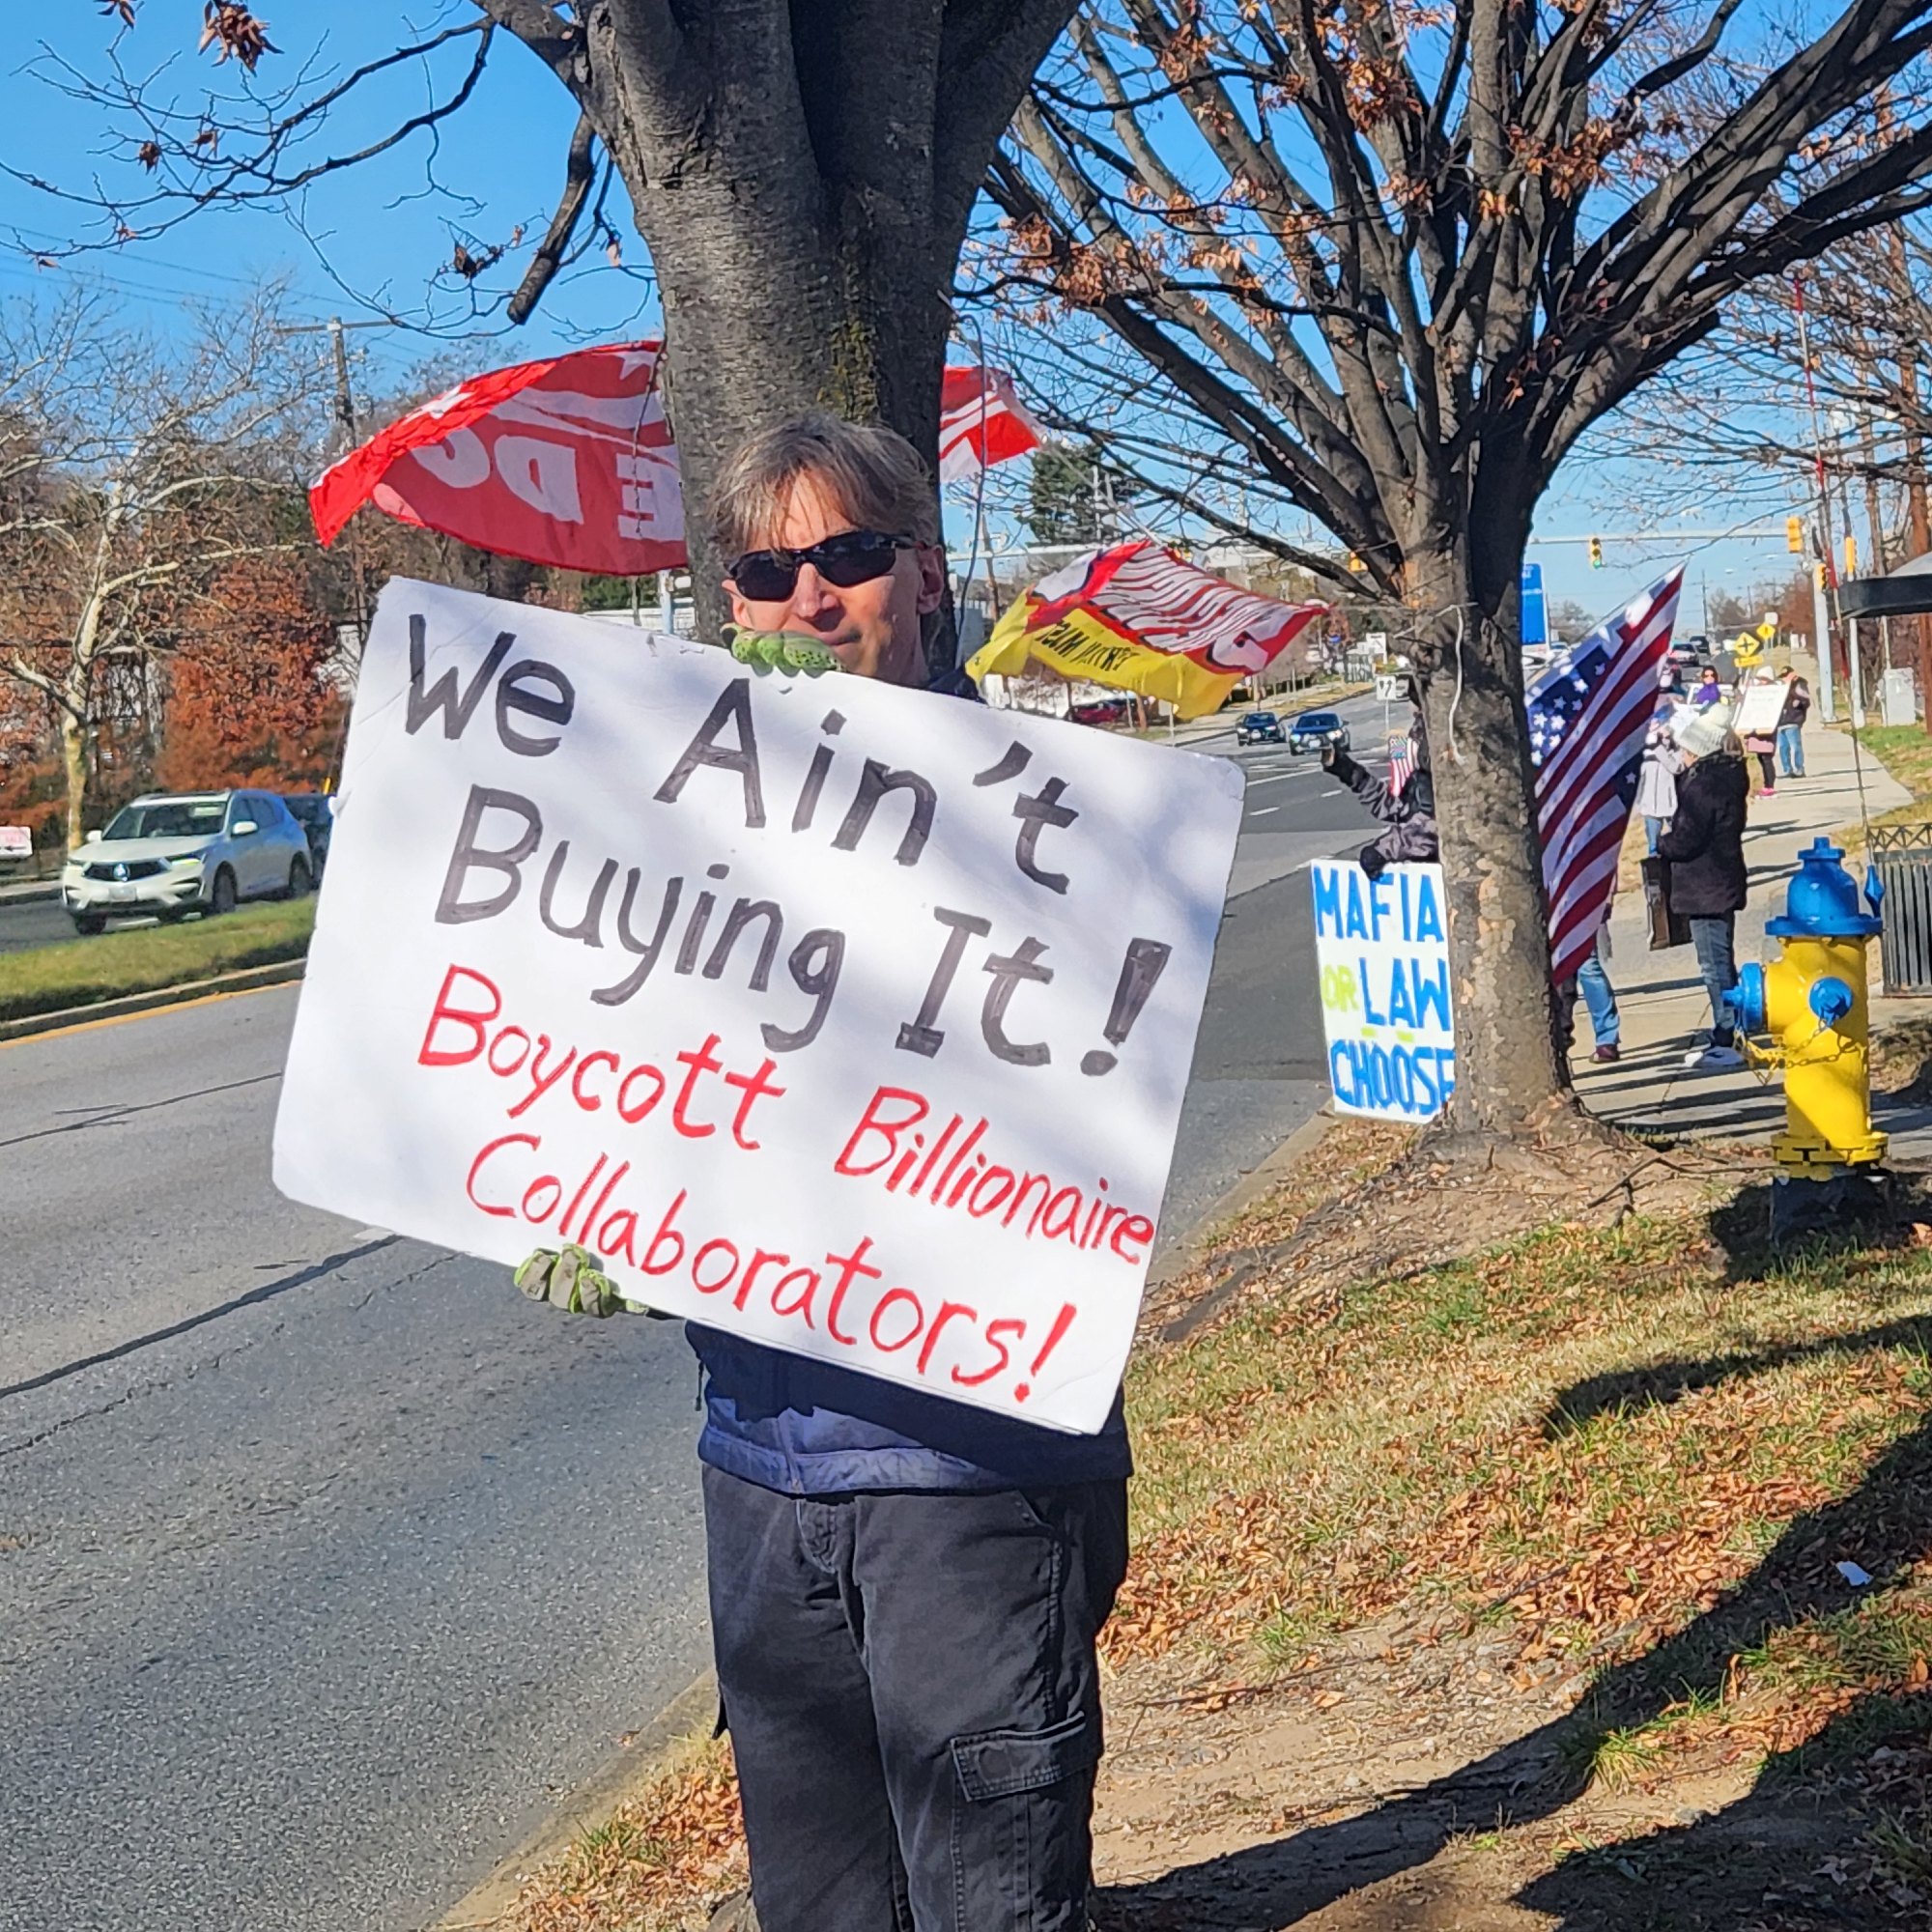 We Ain't
Buying It!
Boycott Billionaire
Collaborators!
MAFIA
OR LAW
CHOOSE